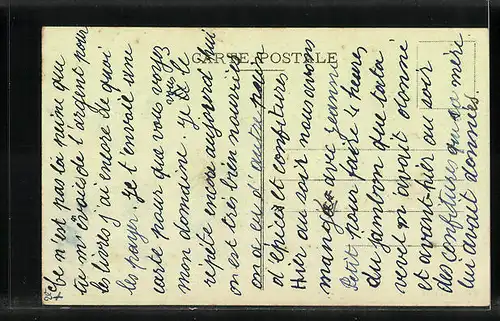 CARTE POSTALE
Ce n'est pas la peine que
tu m'envoies de l'argent pour
les livres j'ai encore de quoi
les payer. Je t'envoie une
carte pour que vous voyez
mon domaine. Je vous le
repète encore aujourd'hui
on est très bien nourries
on a eu d'autre pain
d'épice et confitures
Hier au soir nous avons
mangé avec Jeanne
Petit pour faire 4 heures
du jambon que tata
avait donné
et avant-hier au soir
des confitures que sa mère
lui avait données.